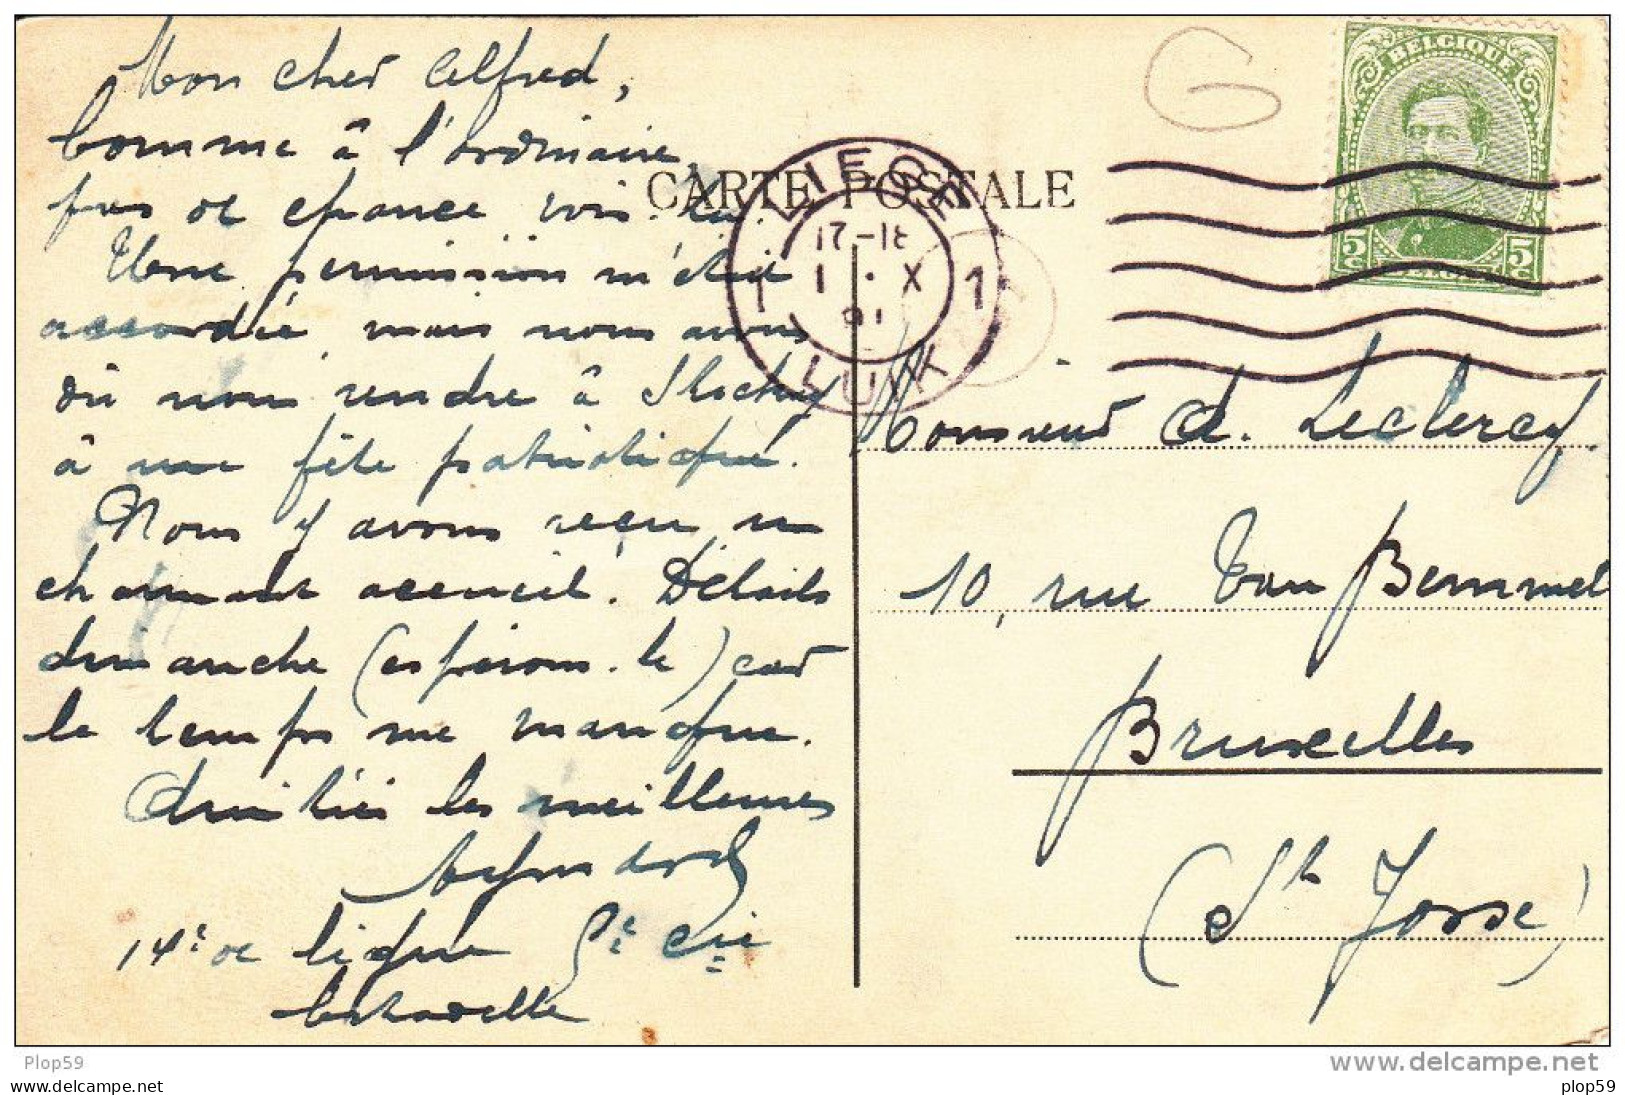 Mon cher Alfred,
Comme à l'ordinaire,
pas de chance vois-tu.
Une permission m'était
accordée mais nous avons
dû nous rendre à
à une fête patriotique.
Nous y avons reçu un
charmant accueil. Détails
dimanche (espérons-le) car
le temps me manque.
Amitiés les meilleures
14e de ligne 5e Cie
CARTE POSTALE
LIEGE
17-18
1 1 · X 1
LUIK
G
BELGIQUE
5c 5c
Monsieur A. Leclercq
10, rue Van Bemmel
Bruxelles
(St Josse)
Plop59
delcampe.net
plop59
plop59